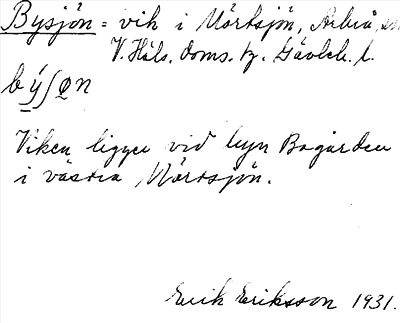 Bysjön = vik i Mörtsjön, Arbrå,
V. Häls. doms. tg. Gävleb. l.
býʃøn
Viken ligger vid byn Bogården
i västra Mörtsjön.
Erik Eriksson 1931.